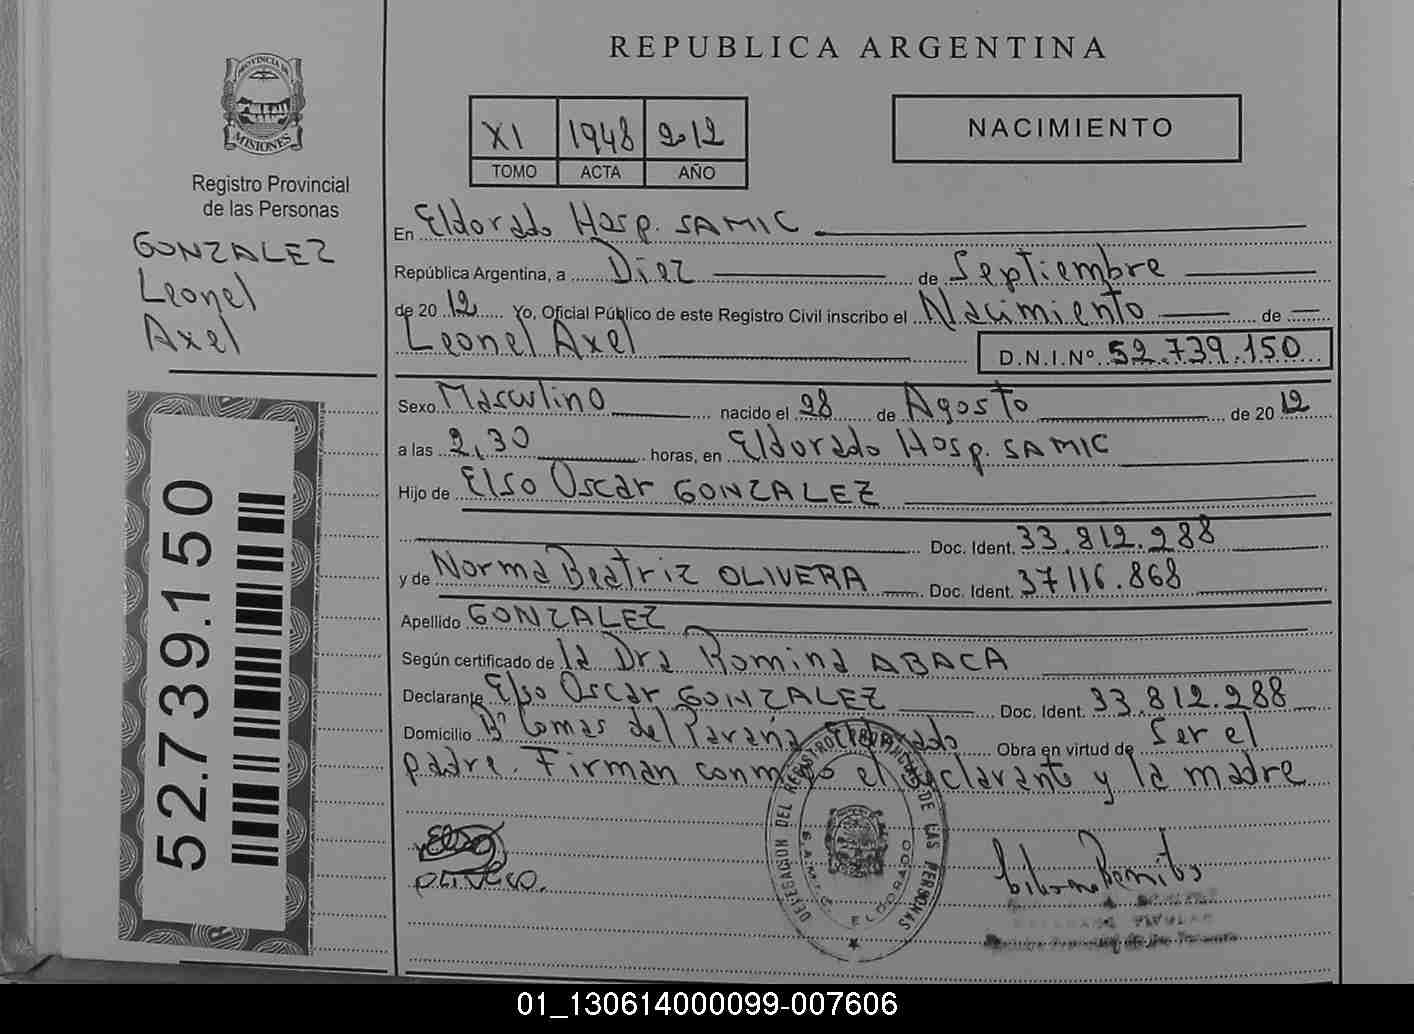 REPUBLICA ARGENTINA
PROVINCIA DE MISIONES
Registro Provincial
de las Personas
GONZALEZ
Leonel
Axel
52.739.150
XI 1948 2012
TOMO ACTA AÑO
NACIMIENTO
En Eldorado Hosp. SAMIC
República Argentina, a Diez de Septiembre
de 2012 Yo, Oficial Público de este Registro Civil inscribo el Nacimiento de
Leonel Axel D.N.I.Nº 52.739.150
Sexo Masculino nacido el 28 de Agosto de 2012
a las 2,30 horas, en Eldorado Hosp. SAMIC
Hijo de Elso Oscar GONZALEZ
Doc. Ident. 33.812.288
y de Norma Beatriz OLIVERA Doc. Ident. 37116.868
Apellido GONZALEZ
Según certificado de la Dra Romina ABACA
Declarante Elso Oscar GONZALEZ Doc. Ident. 33.812.288
Domicilio Bº Lomas del Parana Eldorado Obra en virtud de Ser el
padre. Firman conmigo el declarante y la madre
DELEGACION DEL REGISTRO PROVINCIAL DE LAS PERSONAS
S.A.M.I.C. ELDORADO
01_130614000099-007606